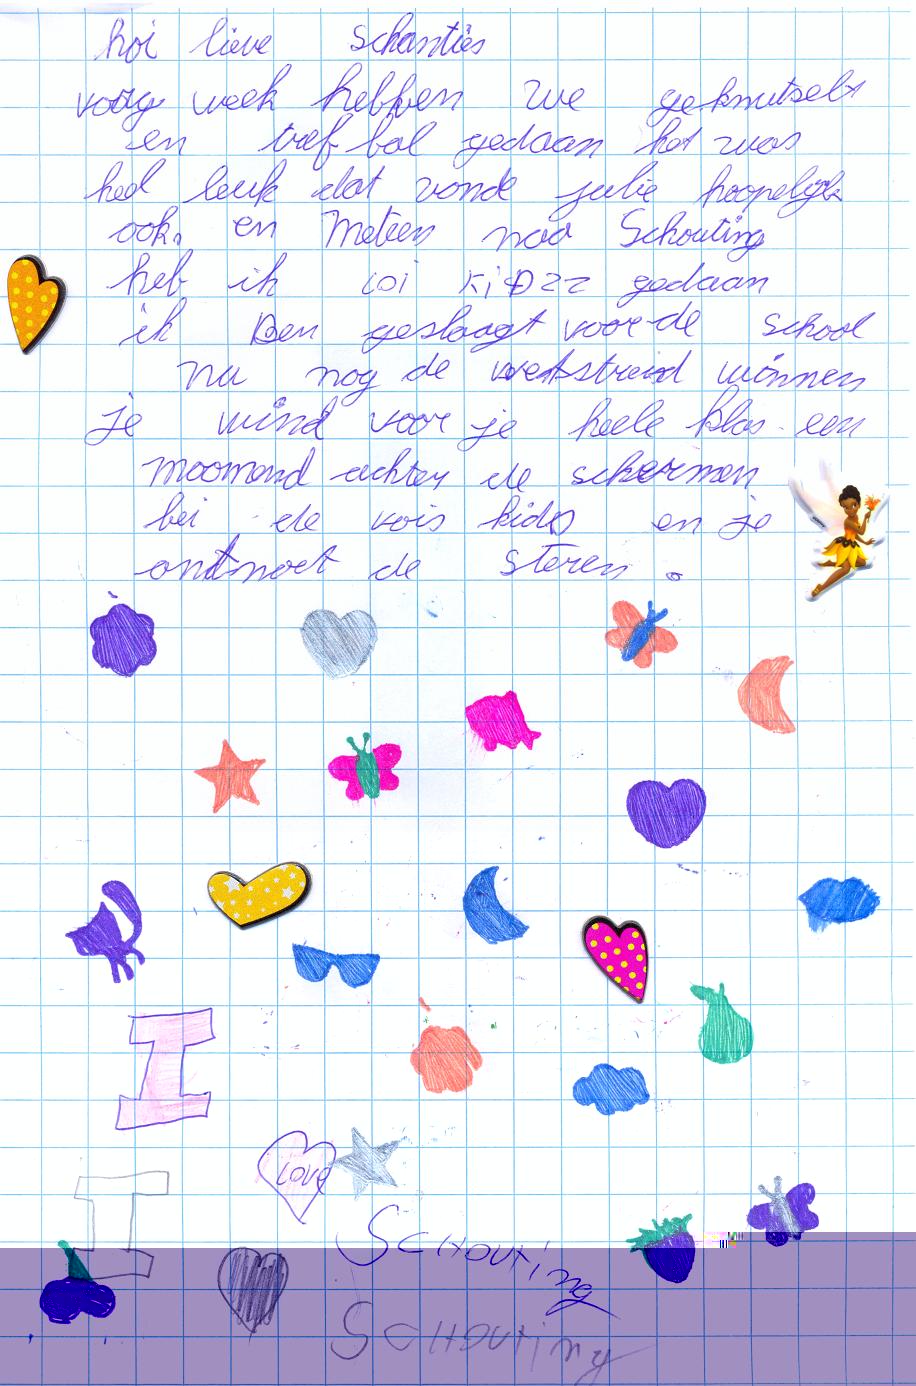 hoi lieve Schanties
voorig week hebben we geknutselt
en tref bal gedaan het was
heel leuk dat vonde julie hoopelijk
ook. en meteen naa Schouting
heb ik woi KiDzz gedaan
ik Ben geslaagt voor de school
nu nog de wetstreid winnen
je wind voor je heele klas een
moomend achter de schermen
bei de vois kids en je
ontmoet de steren.
I
love
I
SCHOUTing
SCHOUTing